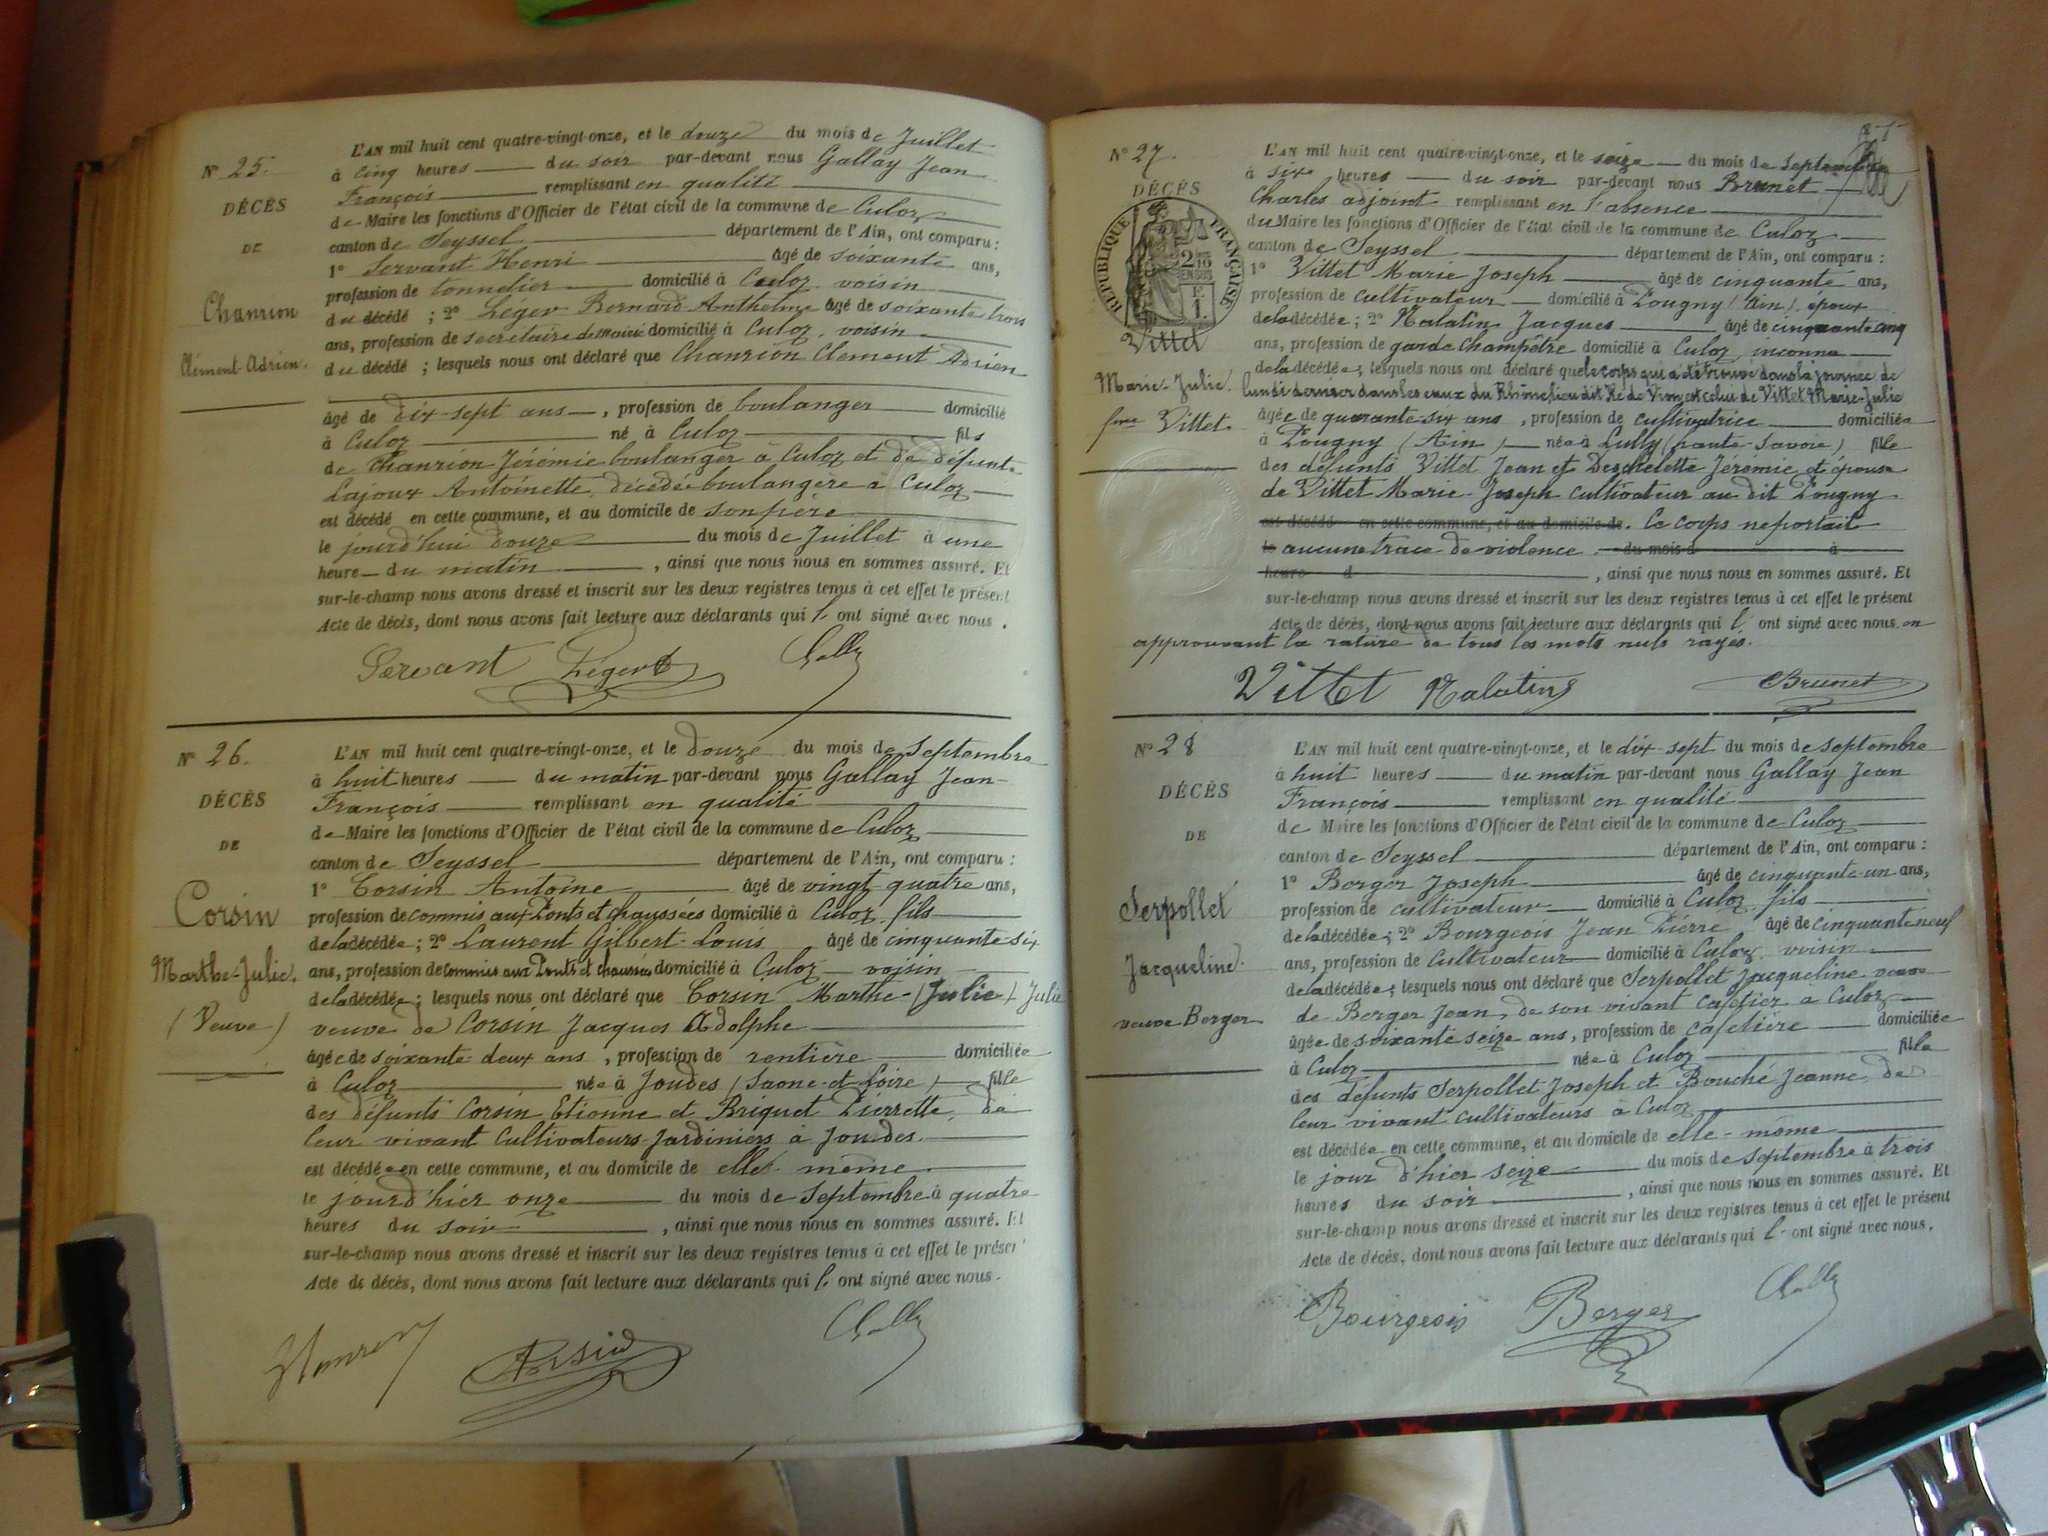 N° 25.
DÉCÈS
DE
Chanrion
Clément-Adrien.
L'AN mil huit cent quatre-vingt-onze, et le douze du mois de Juillet
à cinq heures du soir par-devant nous Gallay Jean
François remplissant en qualité
de Maire les fonctions d'Officier de l'état civil de la commune de Culoz
canton de Seyssel département de l'Ain, ont comparu :
1° Servant Henri âgé de soixante ans,
profession de tonnelier domicilié à Culoz voisin
du décédé ; 2° Léger Bernard Anthelme âgé de soixante trois
ans, profession de secrétaire de Mairie domicilié à Culoz, voisin
du décédé ; lesquels nous ont déclaré que Chanrion Clément Adrien
âgé de dix-sept ans, profession de boulanger domicilié
à Culoz né à Culoz fils
de Chanrion Jérémie boulanger à Culoz et de défunte
Lajoux Antoinette, décédée boulangère à Culoz
est décédé en cette commune, et au domicile de son père
le jourd'hui douze du mois de Juillet à une
heure du matin, ainsi que nous nous en sommes assuré. Et
sur-le-champ nous avons dressé et inscrit sur les deux registres tenus à cet effet le présent
Acte de décès, dont nous avons fait lecture aux déclarants qui l'ont signé avec nous.
Servant Léger B Gally
N° 26.
DÉCÈS
DE
Corsin
Marthe-Julie.
(Veuve)
L'AN mil huit cent quatre-vingt-onze, et le douze du mois de Septembre
à huit heures du matin par-devant nous Gallay Jean-
François remplissant en qualité
de Maire les fonctions d'Officier de l'état civil de la commune de Culoz
canton de Seyssel département de l'Ain, ont comparu :
1° Corsin Antoine âgé de vingt quatre ans,
profession de commis aux Ponts et chaussées domicilié à Culoz fils
de la décédée ; 2° Laurent Gilbert-Louis âgé de cinquante six
ans, profession de commis aux Ponts et chaussées domicilié à Culoz voisin
de la décédée ; lesquels nous ont déclaré que Corsin Marthe-(Julie) Julie
veuve de Corsin Jacques Adolphe
âgée de soixante-deux ans, profession de rentière domiciliée
à Culoz née à Joudes (Saône-et-Loire) fille
des défunts Corsin Etienne et Briquet Pierrette, de
leur vivant cultivateurs-Jardiniers à Joudes.
est décédée en cette commune, et au domicile de elle-même
le jourd'hier onze du mois de Septembre à quatre
heures du soir, ainsi que nous nous en sommes assuré. Et
sur-le-champ nous avons dressé et inscrit sur les deux registres tenus à cet effet le présent
Acte de décès, dont nous avons fait lecture aux déclarants qui l'ont signé avec nous.
Gally
N° 27.
DÉCÈS
RÉPUBLIQUE FRANÇAISE
Vittet
Marie-Julie.
fme Vittet.
L'AN mil huit cent quatre-vingt-onze, et le seize du mois de Septembre
à six heures du soir par-devant nous Brunet
Charles adjoint remplissant en l'absence
du Maire les fonctions d'Officier de l'état civil de la commune de Culoz
canton de Seyssel département de l'Ain, ont comparu :
1° Vittet Marie Joseph âgé de cinquante ans,
profession de cultivateur domicilié à Pougny (Ain), époux
de la décédée ; 2° Malatin Jacques âgé de cinquante cinq
ans, profession de garde champêtre domicilié à Culoz, inconnu
de la décédée ; lesquels nous ont déclaré que le corps qui a été trouvé dans la journée de
lundi dernier dans les eaux du Rhône lieu dit de est celui de Vittet Marie-Julie
âgée de quarante-six ans, profession de cultivatrice domiciliée
à Pougny (Ain) née à Lully (haute-Savoie) fille
des défunts Vittet Jean et Deschelette Jérémie, et épouse
de Vittet Marie-Joseph cultivateur au dit Pougny.
est décédé en cette commune, et au domicile de. Le corps ne portait
le aucune trace de violence. du mois d à
heure d, ainsi que nous nous en sommes assuré. Et
sur-le-champ nous avons dressé et inscrit sur les deux registres tenus à cet effet le présent
Acte de décès, dont nous avons fait lecture aux déclarants qui l'ont signé avec nous en
approuvant la rature de tous les mots nuls rayés.
Vittet Malatin Brunet
N° 28
DÉCÈS
DE
Serpollet
Jacqueline.
veuve Berger
L'AN mil huit cent quatre-vingt-onze, et le dix-sept du mois de septembre
à huit heures du matin par-devant nous Gallay Jean
François remplissant en qualité
de Maire les fonctions d'Officier de l'état civil de la commune de Culoz
canton de Seyssel département de l'Ain, ont comparu :
1° Berger Joseph âgé de cinquante-un ans,
profession de cultivateur domicilié à Culoz fils
de la décédée ; 2° Bourgeois Jean Pierre âgé de cinquante neuf
ans, profession de Cultivateur domicilié à Culoz voisin
de la décédée ; lesquels nous ont déclaré que Serpollet Jacqueline veuve
de Berger Jean, de son vivant cafetier à Culoz
âgée de soixante seize ans, profession de cafetière domiciliée
à Culoz née à Culoz fille
des défunts Serpollet Joseph et Bouché Jeanne, de
leur vivant cultivateurs à Culoz
est décédée en cette commune, et au domicile de elle-même
le jour d'hier seize du mois de septembre à trois
heures du soir, ainsi que nous nous en sommes assuré. Et
sur-le-champ nous avons dressé et inscrit sur les deux registres tenus à cet effet le présent
Acte de décès, dont nous avons fait lecture aux déclarants qui l'ont signé avec nous.
Bourgeois Berger Gally